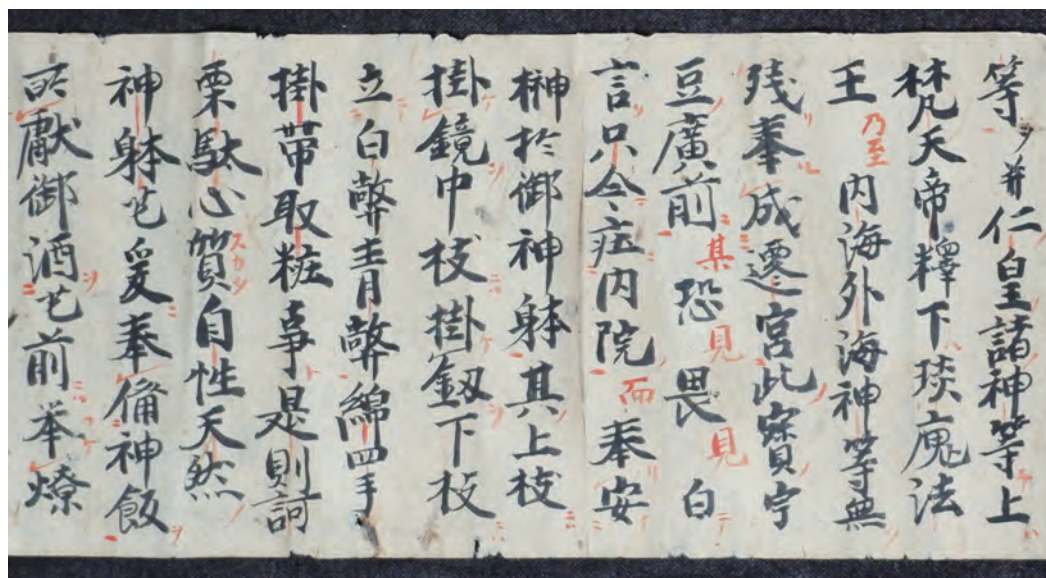 等ヲ并仁皇諸神等上
梵天帝釋下琰魔法
王乃至内海外海神等無
残奉成遷宮此寳宁
豆廣前某恐見畏見白
言只今庄内院而奉安
榊於御神躰其上枝
掛鏡中枝掛釼下枝
立白幣青幣綿四手
掛帯取粧事是則訶
栗駄心質自性天然
神躰也爰奉備神飯
所献御酒也前奉燎